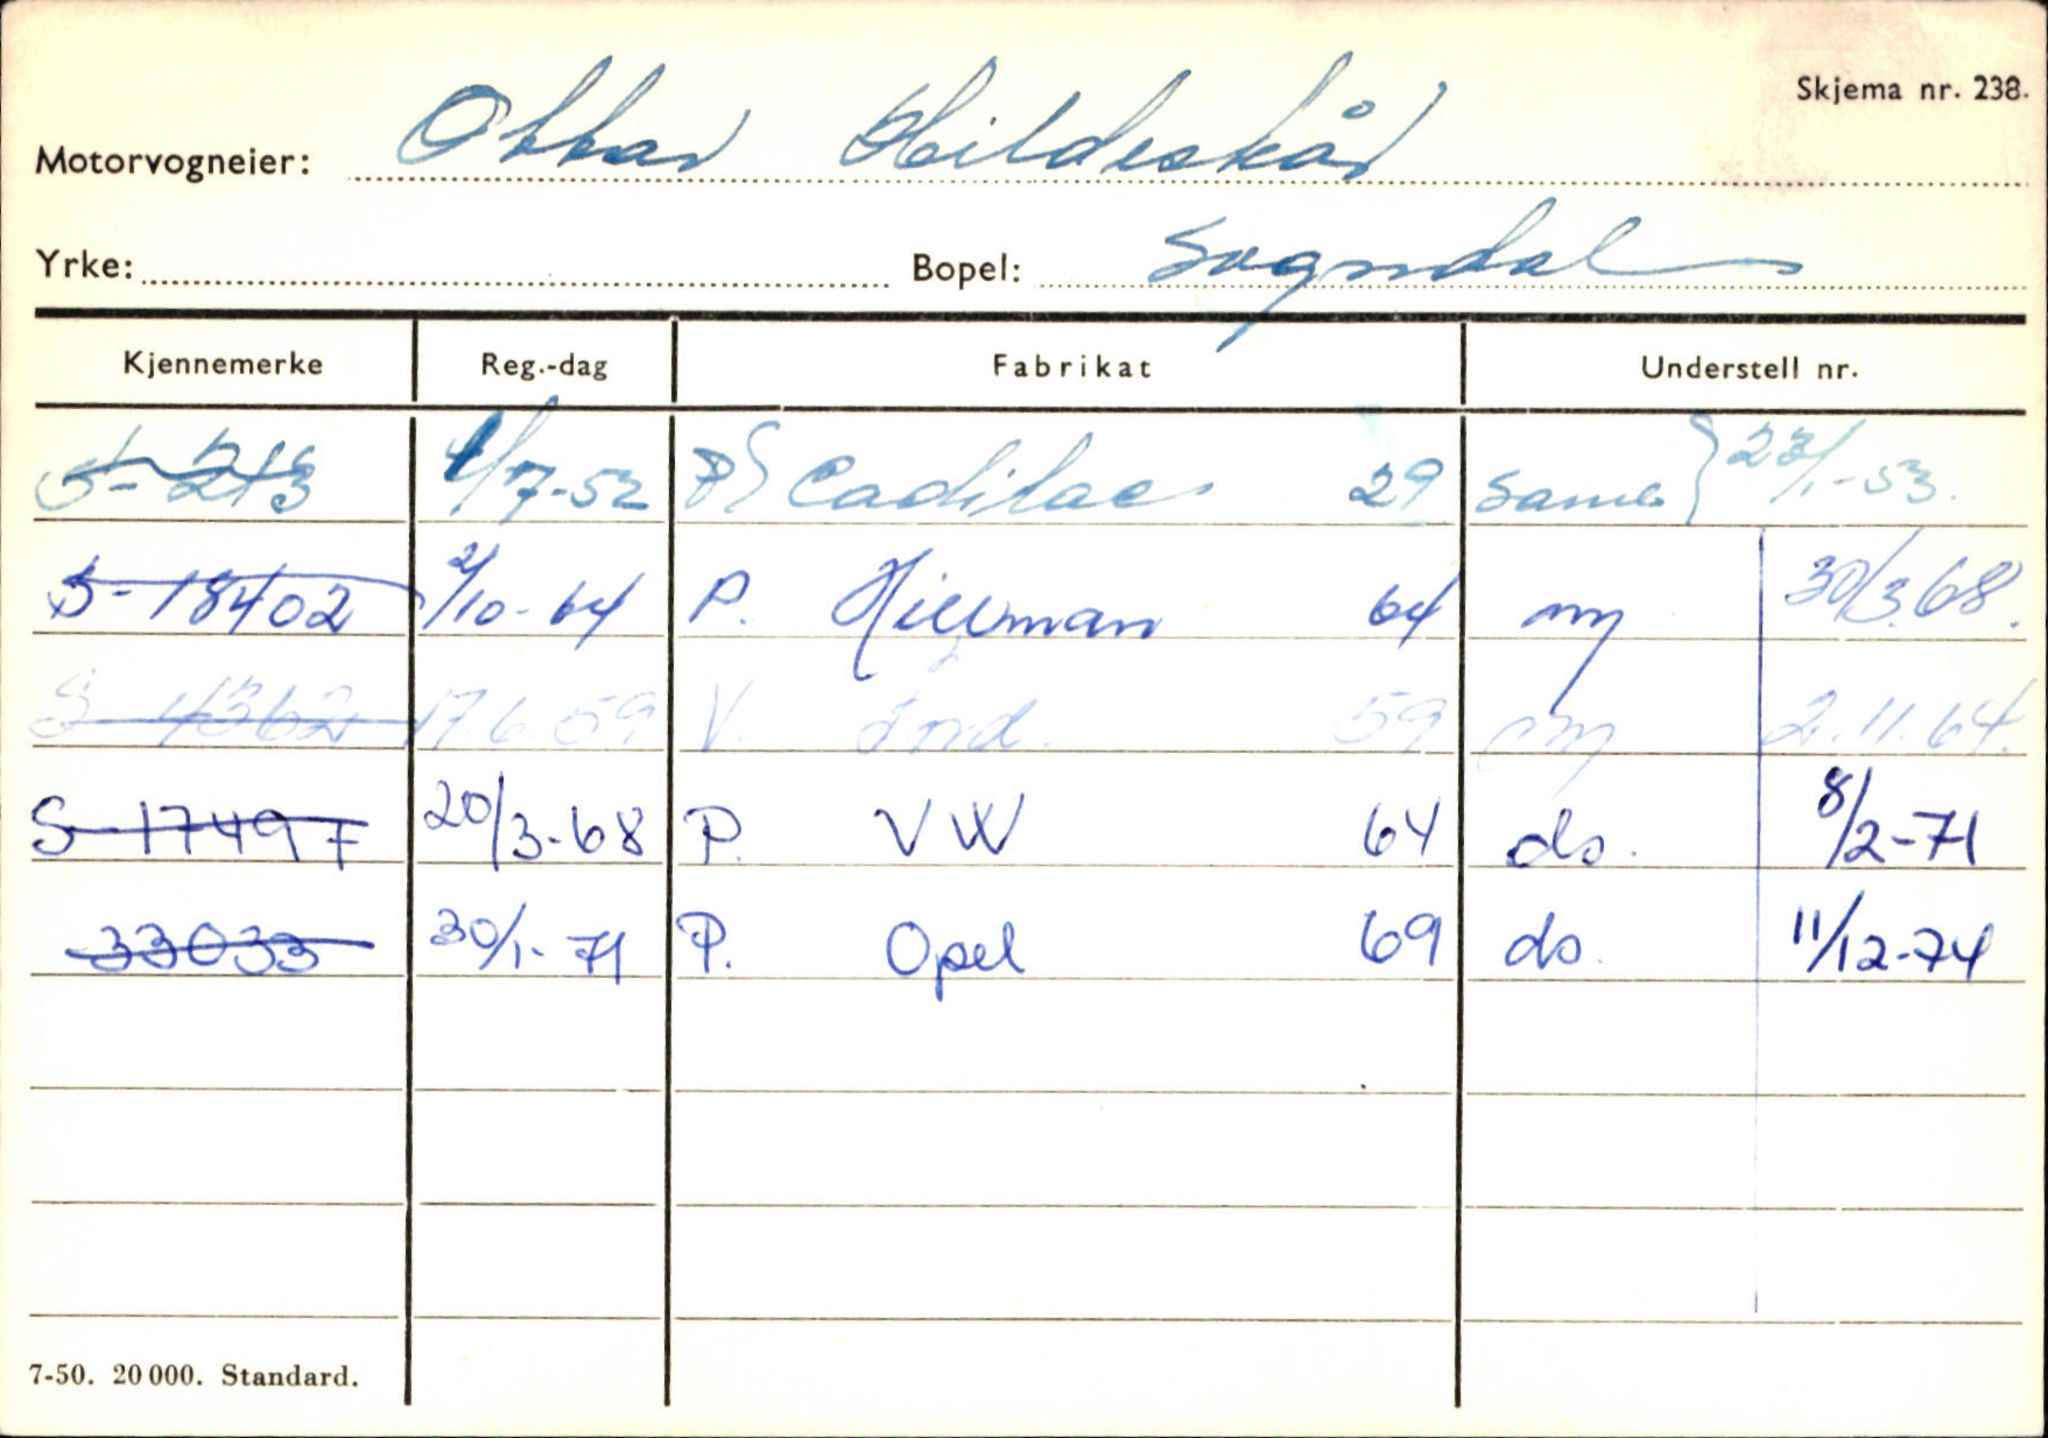 Skjema nr. 238.
Motorvogneier: Ottar Hildeskår
Yrke: Bopel: Sogndal
Kjennemerke Reg.-dag Fabrikat Understell nr.
S-213 1/7-52 P Cadilac 29 same 23/1-53.
S-18402 2/10-64 P. Hillman 64 ny 30/3.68.
S-4362 17.6.59 V. Ford. 59 ny 2.11.64.
S-17497 20/3-68 P. VW 64 do. 8/2-71
33033 30/1-71 P. Opel 69 do. 11/12-74
7-50. 20 000. Standard.